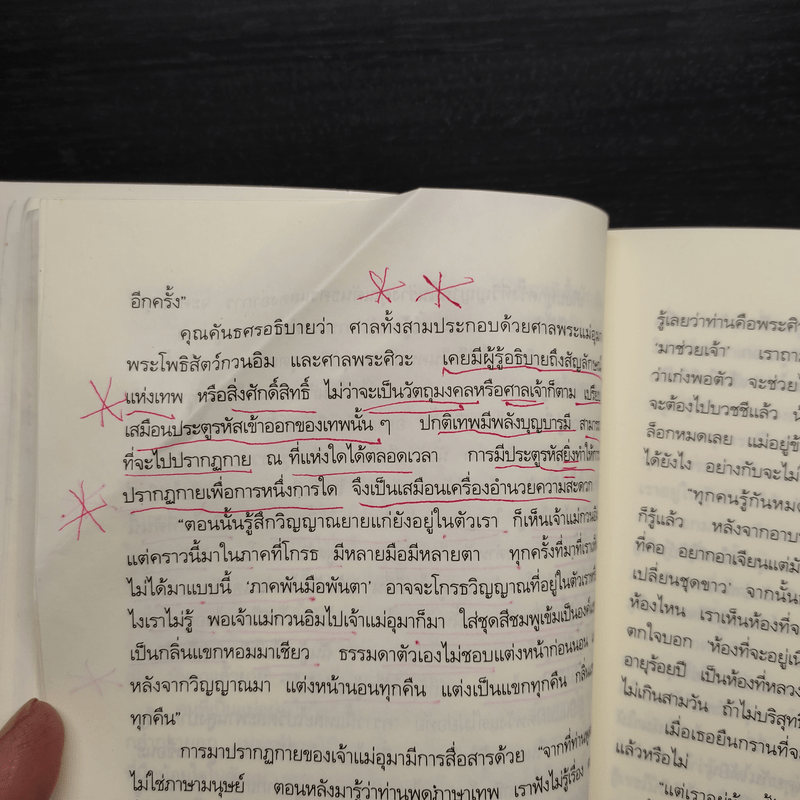 อีกครั้ง”
คุณคันธศรอธิบายว่า ศาลทั้งสามประกอบด้วยศาลพระแม่อุมา
พระโพธิสัตว์กวนอิม และศาลพระศิวะ เคยมีผู้รู้อธิบายถึงสัญลักษณ์
แห่งเทพ หรือสิ่งศักดิ์สิทธิ์ ไม่ว่าจะเป็นวัตถุมงคลหรือศาลเจ้าก็ตาม เปรียบ
เสมือนประตูรหัสเข้าออกของเทพนั้น ๆ ปกติเทพมีพลังบุญบารมี สามารถ
ที่จะไปปรากฏกาย ณ ที่แห่งใดได้ตลอดเวลา การมีประตูรหัสยิ่งทำให้การ
ปรากฏกายเพื่อการหนึ่งการใด จึงเป็นเสมือนเครื่องอำนวยความสะดวก
“ตอนนั้นรู้สึกวิญญาณยายแก่ยังอยู่ในตัวเรา ก็เห็นเจ้าแม่กวนอิม
แต่คราวนี้มาในภาคที่โกรธ มีหลายมือมีหลายตา ทุกครั้งที่มาที่เราเห็น
ไม่ได้มาแบบนี้ ‘ภาคพันมือพันตา’ อาจจะโกรธวิญญาณที่อยู่ในตัวเราหรือ
ไงเราไม่รู้ พอเจ้าแม่กวนอิมไปเจ้าแม่อุมาก็มา ใส่ชุดสีชมพูเข้มเป็นองค์
เป็นกลิ่นแขกหอมมาเชียว ธรรมดาตัวเองไม่ชอบแต่งหน้าก่อนนอน
หลังจากวิญญาณมา แต่งหน้านอนทุกคืน แต่งเป็นแขกทุกคืน กลิ่น
ทุกคืน”
การมาปรากฏกายของเจ้าแม่อุมามีการสื่อสารด้วย “จากที่ท่านพูด
ไม่ใช่ภาษามนุษย์ ตอนหลังมารู้ว่าท่านพูดภาษาเทพ เราฟังไม่รู้เรื่อง
รู้เลยว่าท่านคือพระศิ
‘มาช่วยเจ้า’ เราถาม
ว่าเก่งพอตัว จะช่วย
จะต้องไปบวชชีแล้ว
ล็อกหมดเลย แม่อยู่ข้
ได้ยังไง อย่างกับจะไม่
“ทุกคนรู้กันหมด
ก็รู้แล้ว หลังจากอาบ
ที่คอ อยากอาเจียนแต่
เปลี่ยนชุดขาว’ จากนั้น
ห้องไหน เราเห็นห้องที่จ
ตกใจบอก ‘ห้องที่จะอยู่เนี่
อายุร้อยปี เป็นห้องที่หลวง
ไม่เกินสามวัน ถ้าไม่บริสุทธิ์
เมื่อเธอยืนกรานที่จ
แล้วหรือไม่
“แต่เราอยู่